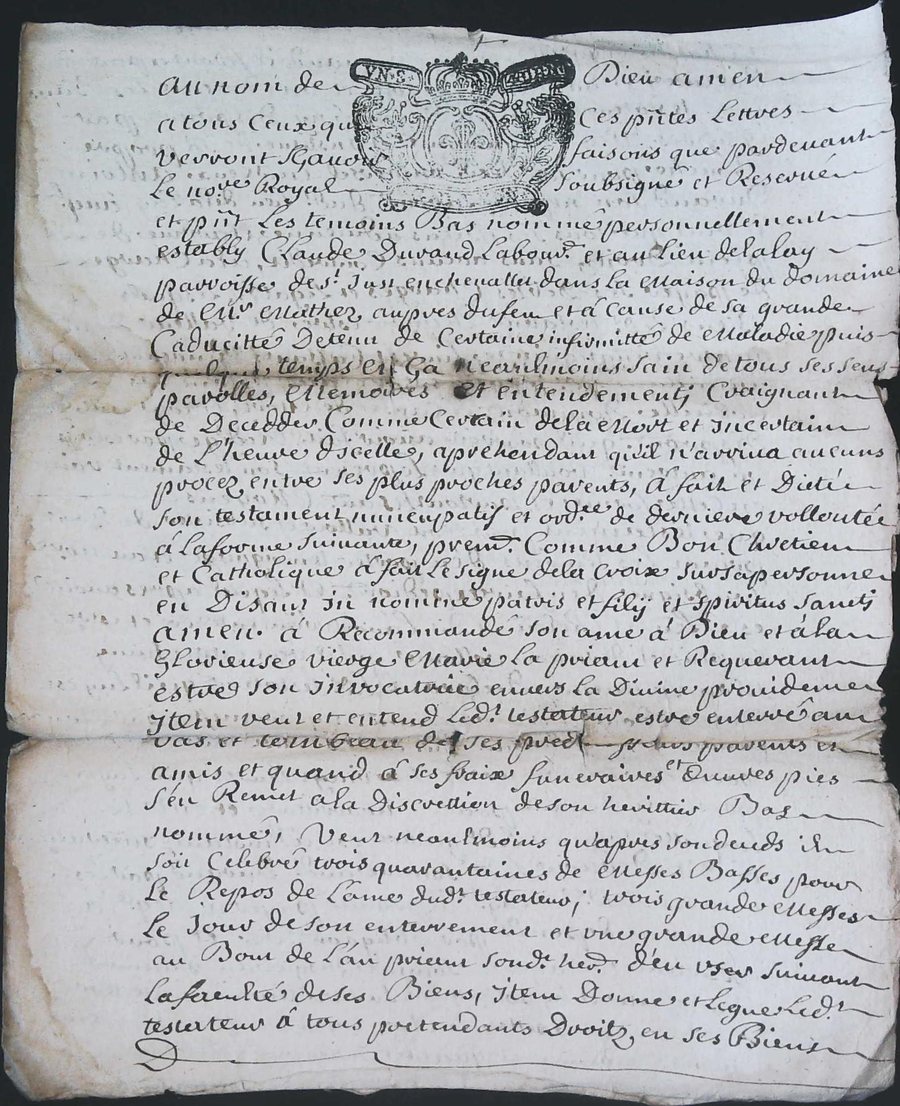 Au nom de Dieu amen
a tous Ceux qui Ces pntes Lettres
verront Sçavoir faisons que pardevant
Le nore Royal Soubsigné et Reservé
et pnt Les temoins Bas nommé personnellement
estably Claude Durand Labour. et au lieu de lalay
parroisse de st. Just en chevallet dans la Maison du domaine
de Mr Mathez, aupres du feu et à Cause de sa grande
Caducitté Detenu de Certaine infirmitté de Maladie puis
quelque temps en ça neanlmoins sain de tous ses sens
parolles, Memoires et entendement, Craignant
de Decedder Comme Certain de la Mort et incertain
de L'heure d'icelle, aprehendant qu'il n'arriva aucuns
procez entre ses plus proches parents, à fait et Dicté
son testament nuncupatif et ordce de derniere vollontée
à la forme suivante, prem. Comme Bon Chretien
et Catholique à fait Le signe de la Croix sur sa personne
en Disant in nomine patris et filij et spiritus sancti
amen. à Recommandé son ame à Dieu et à la
Glorieuse vierge Marie la priant et Requerant
estre son invocatrice envers la Divine providence
Item veut et entend Ledt. testateur estre enterré au
vas et tombeau de ses parents et
amis et quand à ses fraix funeraires et Œuvres pies
s'en Remet a la Discrettion de son herittier Bas
nommé, Veut neaulmoins qu'apres son deceds il
soit Celebré trois quarantaines de Messes Basses pour
le Repos de L'ame dudt. testateur, trois grande Messes
le Jour de son enterrement et une grande Messe
au Bout de L'an priant sondt. her. d'en user suivant
la faculté de ses Biens, Item Donne et Legue Ledt.
testateur à tous pretendants Droitz en ses Biens